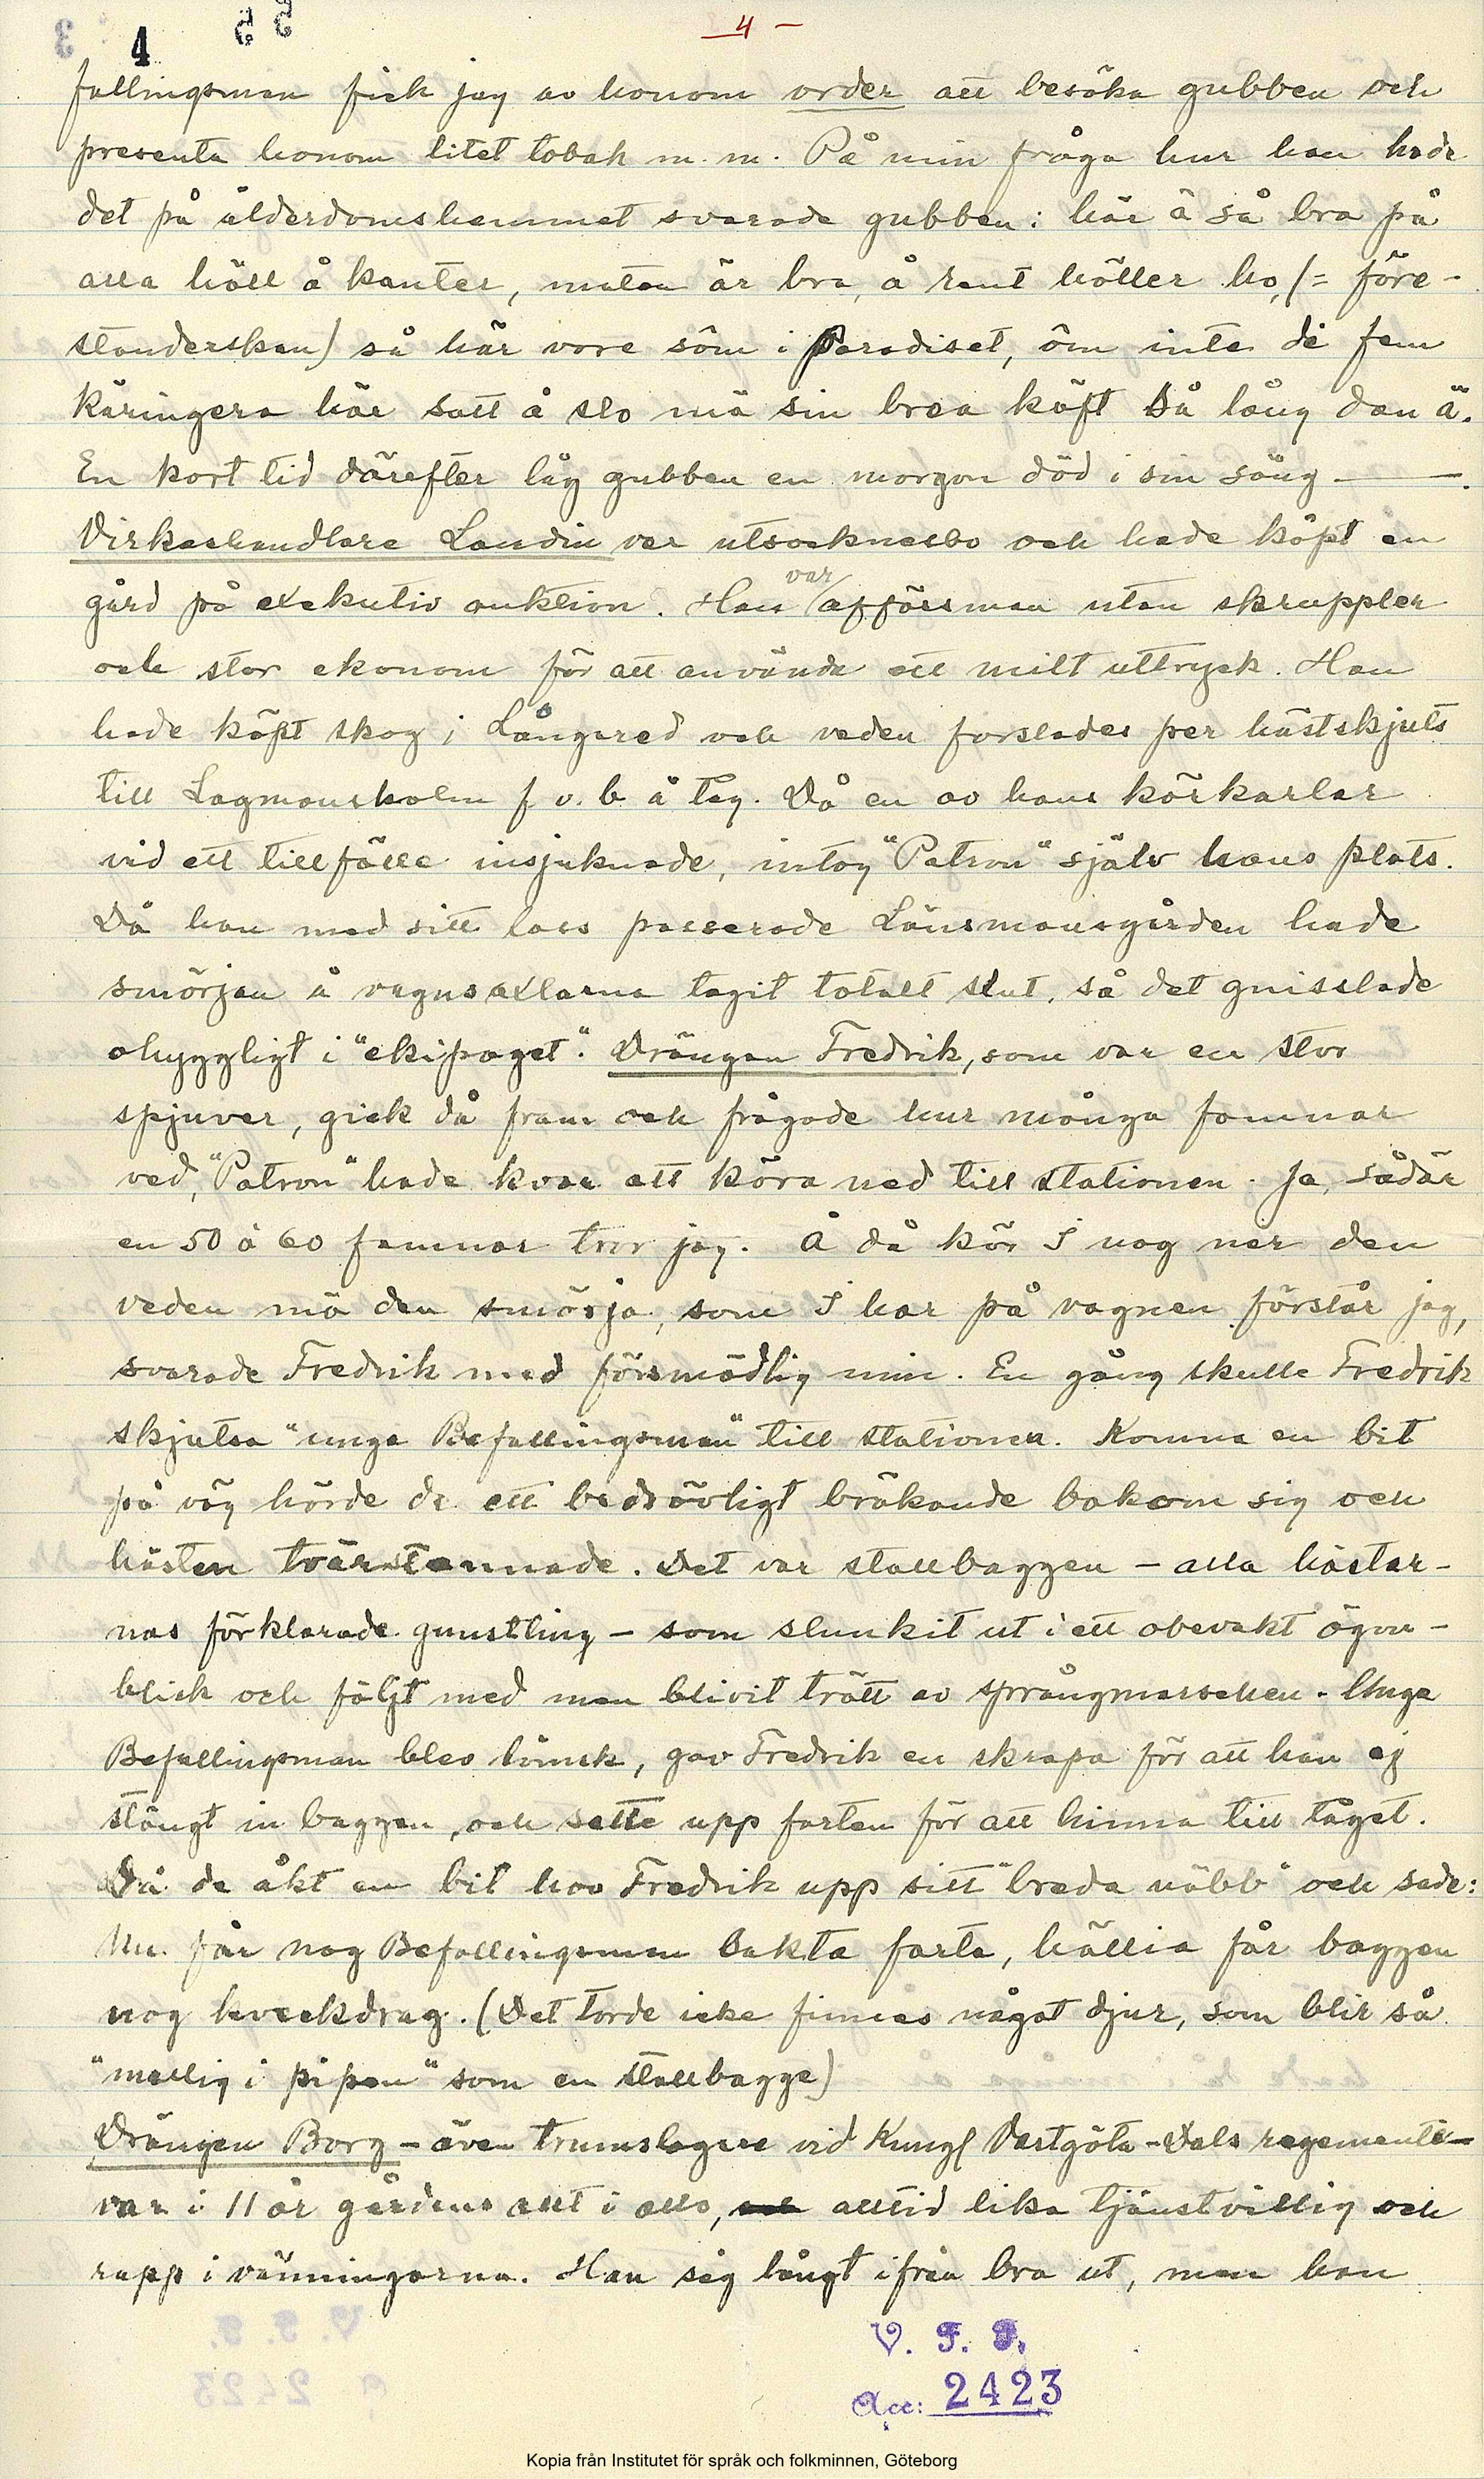 4
4 –
fallingsman fick jag av honom order att besöka gubben och
presenta honom litet tobak m.m. På min fråga hur han hade
det på ålderdomshemmet svarade gubben: här ä så bra på
alla håll å kanter, maten är bra, å rent håller ho, (= före-
ståndarskan) så här vore söm i Paradiset, öm inte di fem
käringera här satt å slo mä sin brea käft så lång dan ä.
En kort tid därefter låg gubben en morgon död i sin säng ———.
Virkeshandlare Landin var utsocknesbo och hade köpt en
gård på exekutiv auktion. Han var affärsman utan skruppler
och stor ekonom för att använda ett milt uttryck. Han
hade köpt skog i Långared och veden forslades per hästskjuts
till Lagmansholm f.v.b. å tåg. Då en av hans körkarlar
vid ett tillfälle insjuknade, intog "Patron" själv hans plats.
Då han med sitt lass passerade Länsmansgården hade
smörjan å vagnsaxlarna tagit totalt slut, så det gnisslade
ohyggligt i "ekipaget". Drängen Fredrik, som var en stor
spjuver, gick då fram och frågade hur många famnar
ved, "Patron" hade kvar att köra ned till stationen. Ja, sådär
en 50 à 60 famnar tror jag. Å då kör I nog ner den
veden mä den smörja, som I har på vagnen förstår jag,
svarade Fredrik med försmädlig min. En gång skulle Fredrik
skjutsa "unga Befallingsman" till stationen. Komna en bit
på väg hörde de ett bedrövligt bräkande bakom sig och
hästen tvärstannade. Det var stallbaggen – alla hästar-
nas förklarade gunstling – som slunkit ut i ett obevakt ögon-
blick och följt med men blivit trött av språngmarschen. Unga
Befallingsman blev lömsk, gav Fredrik en skrapa för att han ej
stängt in baggen, och satte upp farten för att hinna till tåget.
Då de åkt en bit hov Fredrik upp sitt "breda näbb" och sade:
Nu får nog Befallingsman sakta farta, hällia får baggen
nog kveckdrag. (Det torde icke finnas något djur, som blir så
"mallig i pipan" som en stallbagge)
Drängen Borg – även trumslagare vid Kungl Västgöta-Dals regemente –
var i 11 år gårdens allt i allo, alltid lika tjänstvillig och
rapp i vänningarna. Han såg långt ifrån bra ut, men han
V. F. F.
Acc: 2423
Kopia från Institutet för språk och folkminnen, Göteborg